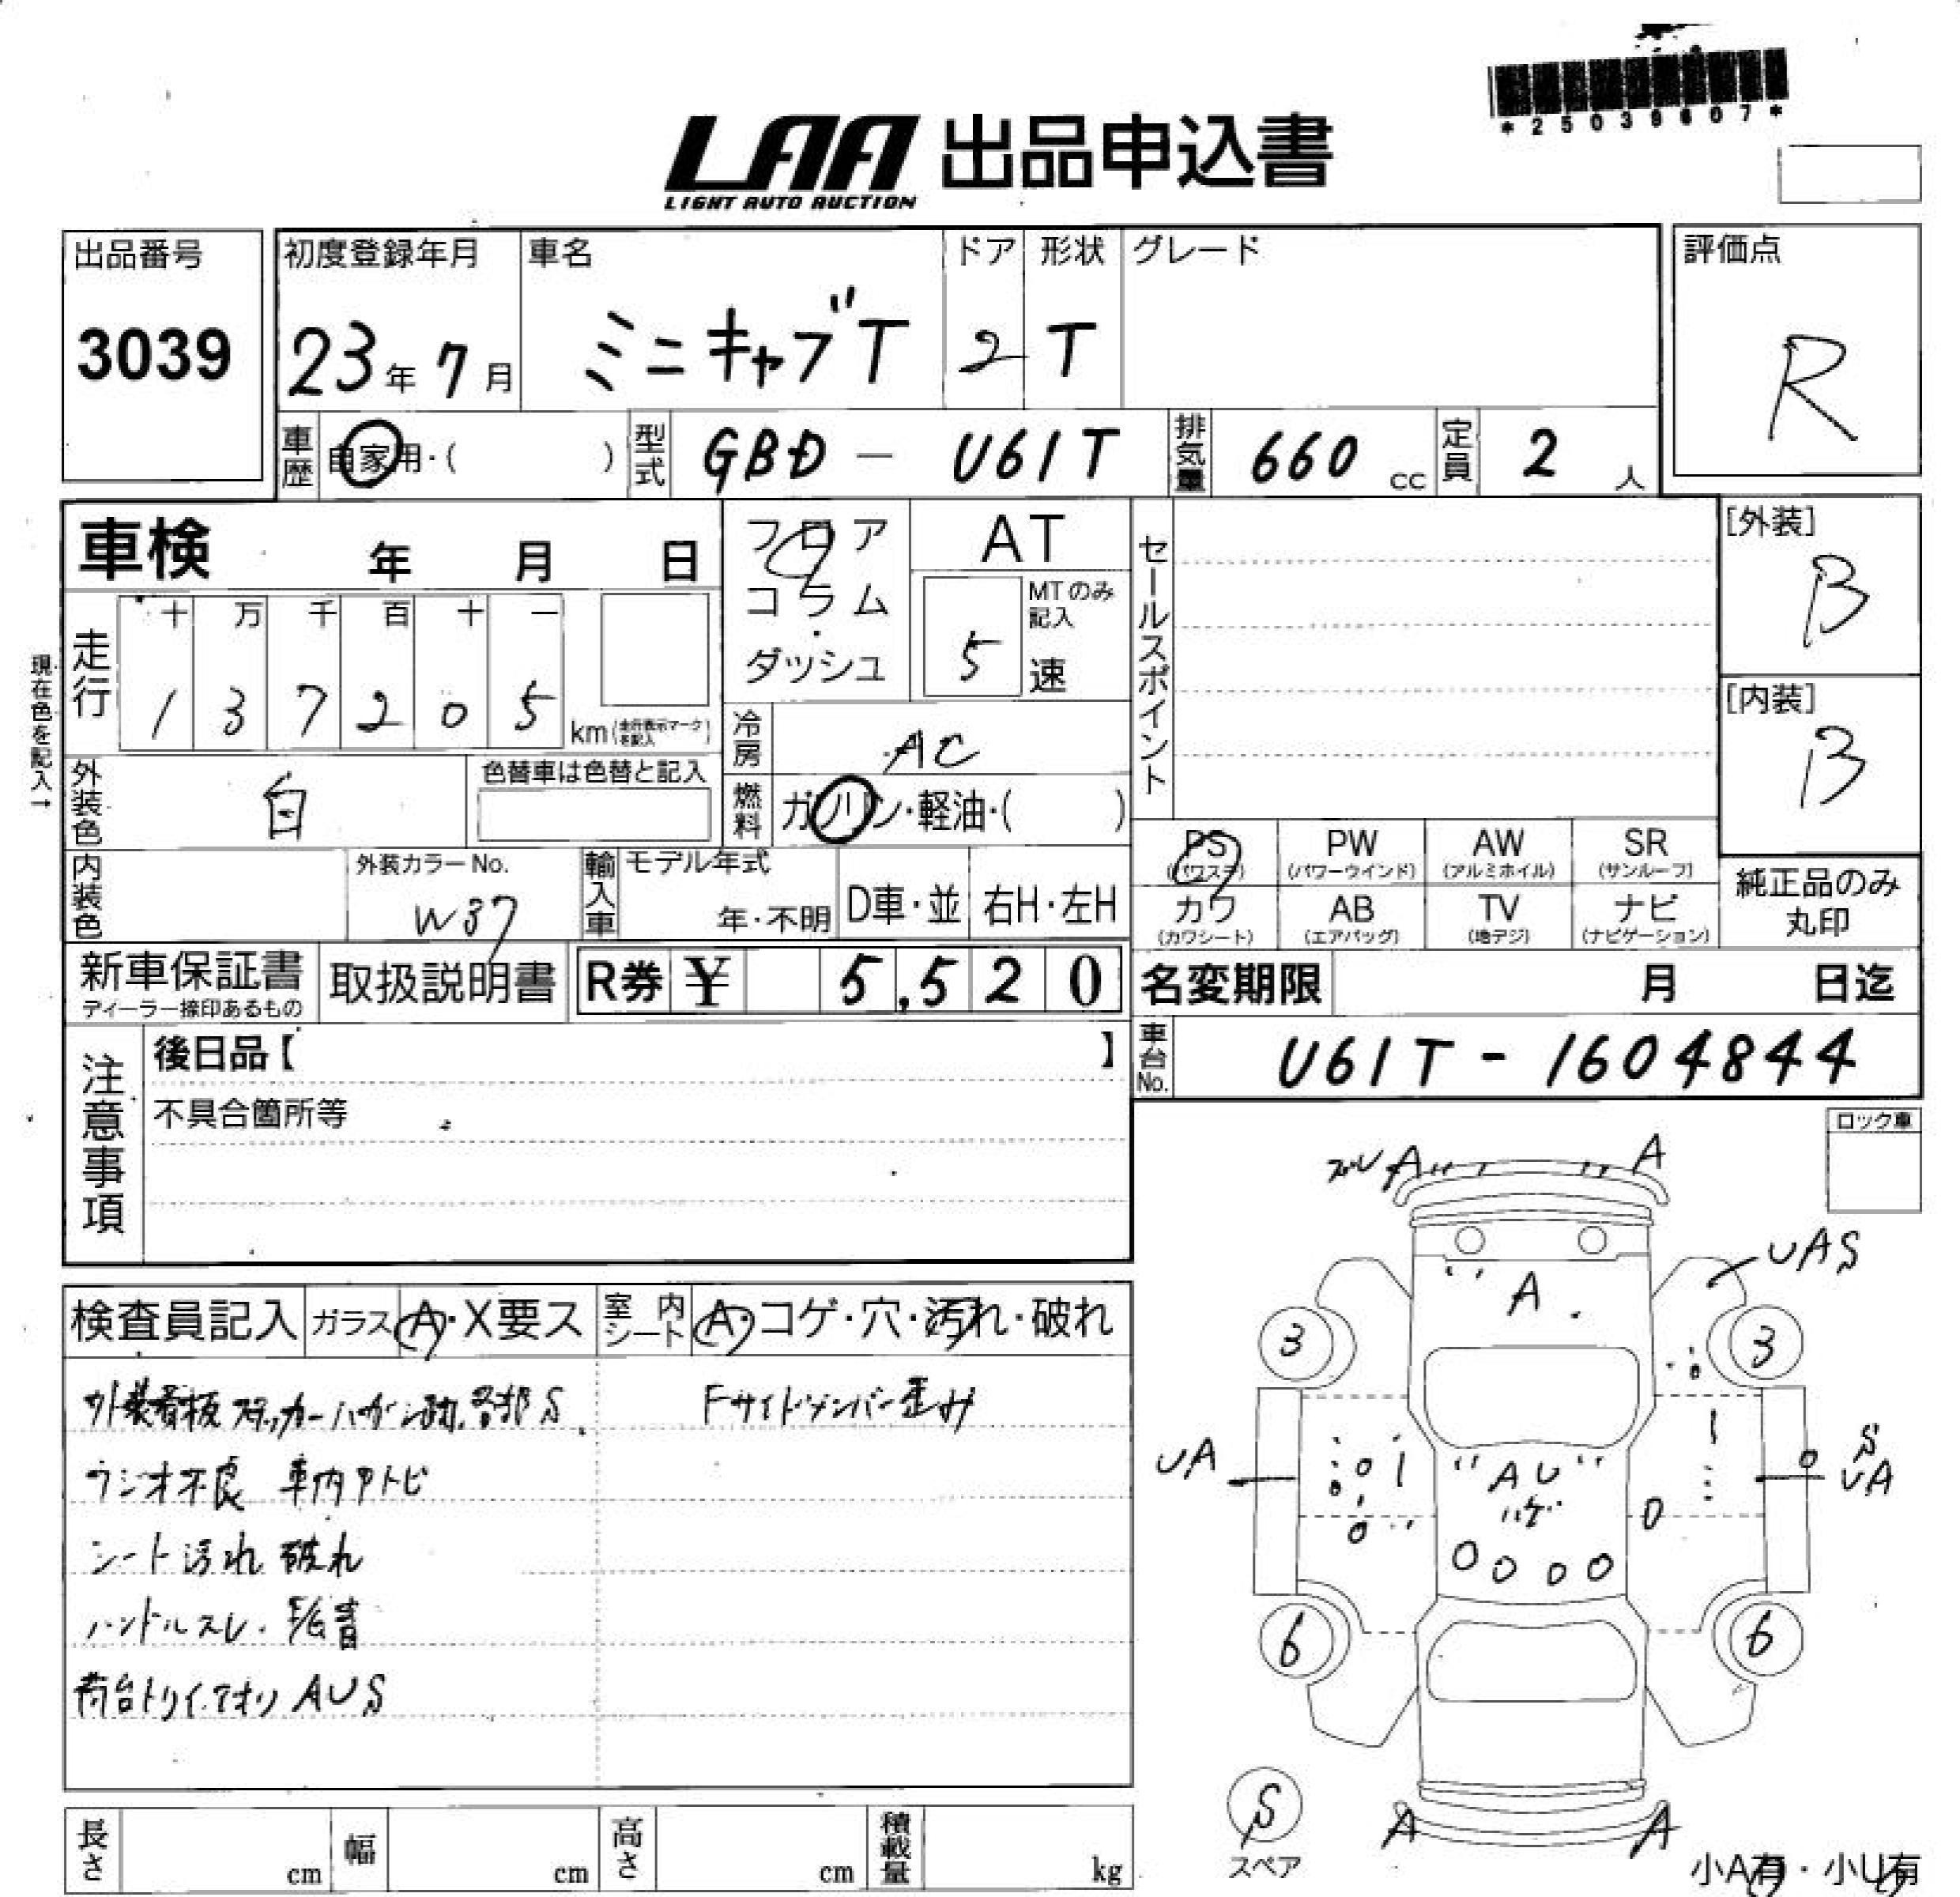 *25039607*
LAA 出品申込書
LIGHT AUTO AUCTION
出品番号
3039
初度登録年月
23年 7月
車名
ミニキャブT
ドア
2
形状
T
グレード
評価点
R
車歴 自家用・( )
型式 GBD - U61T
排気量 660 cc
定員 2 人
車検 年 月 日
フロア
コラム
ダッシュ
AT
MTのみ記入
5 速
セールスポイント
[外装]
B
[内装]
B
現在色を記入→
走行
十 万 千 百 十 一
1 3 7 2 0 5 km(走行表示マークを記入)
冷房 AC
燃料 ガソリン・軽油・( )
外装色 白
色替車は色替と記入
内装色
外装カラーNo.
W37
輸入車
モデル年式
年・不明
D車・並
右H・左H
PS (パワステ)
PW (パワーウインド)
AW (アルミホイル)
SR (サンルーフ)
カワ (カワシート)
AB (エアバッグ)
TV (地デジ)
ナビ (ナビゲーション)
純正品のみ
丸印
新車保証書
ディーラー捺印あるもの
取扱説明書
R券 ¥ 5,520
名変期限 月 日迄
車台No. U61T - 1604844
注意事項
後日品【 】
不具合箇所等
ロック車
検査員記入
ガラス A・X要ス
室内シート A・コゲ・穴・汚れ・破れ
外装看板ステッカーハガシ跡.各部S
Fサイドメンバー歪み
ラジオ不良 車内ヤトビ
シート汚れ 破れ
ハンドルスレ.
荷台トリイ.アオリ AUS
A
A
UAS
A
3
3
UA
AU
ハゲ
S
UA
6
6
S
スペア
A
A
小A有・小U有
長さ cm
幅 cm
高さ cm
積載量 kg